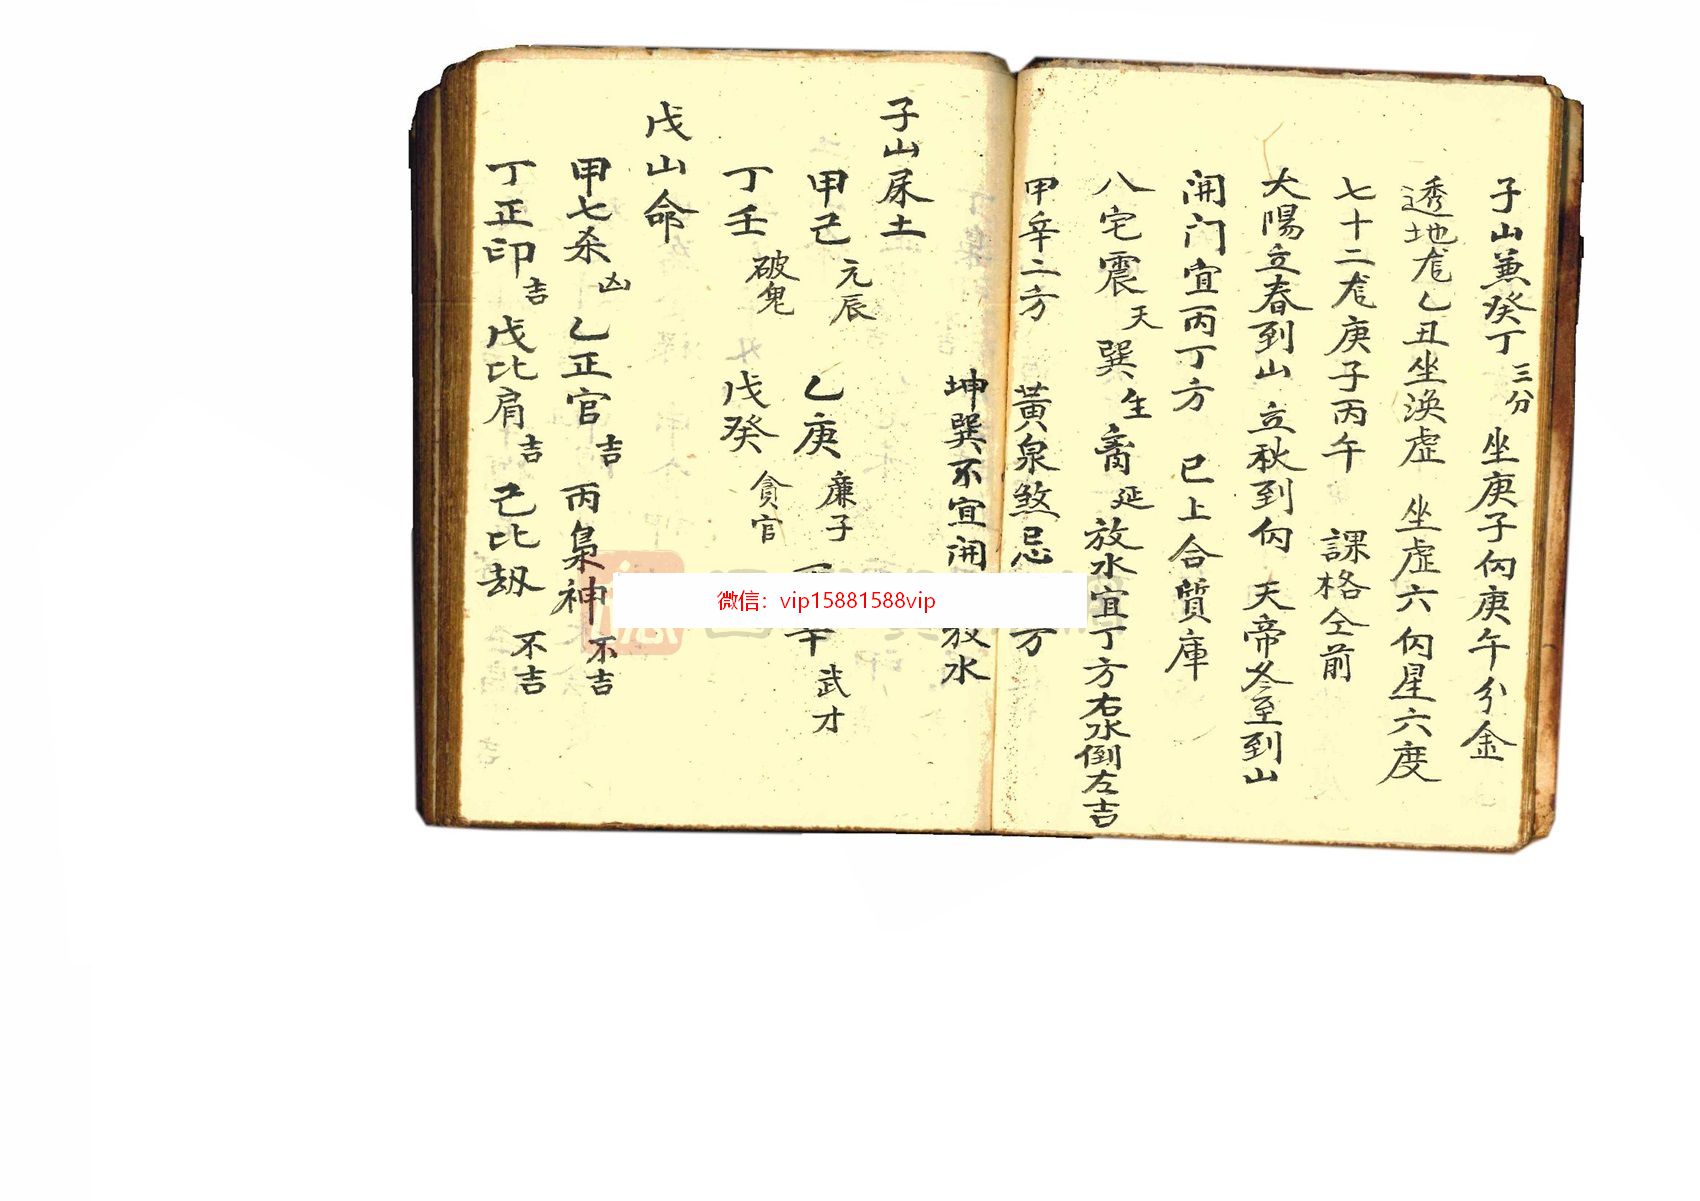 子山兼癸丁三分 坐庚子向庚午分金
透地龙乙丑坐渙虚 坐虚六向星六度
七十二龙庚子丙午 課格仝前
太陽立春到山 立秋到向 天帝冬至到山
開门宜丙丁方 已上合質庫
八宅震天巽生离延放水宜丁方右水倒左吉
甲辛二方 黃泉煞忌 方
坤巽不宜開 放水
子山尿土
甲己元辰 乙庚廉子 辛武才
丁壬破鬼 戊癸貪官
戊山命
甲七杀凶 乙正官吉 丙梟神不吉
丁正印吉 戊比肩吉 己比劫不吉
微信：vip15881588vip